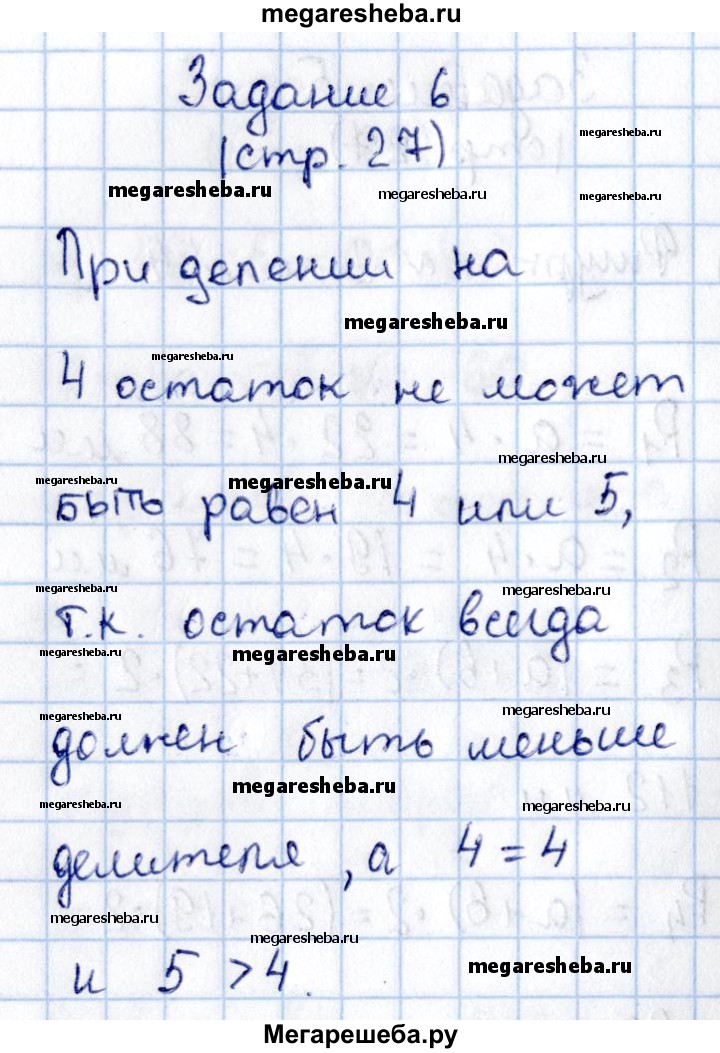 megaresheba.ru
Задание 6
megaresheba.ru
(стр. 27)
megaresheba.ru
megaresheba.ru
megaresheba.ru
При делении на
megaresheba.ru
megaresheba.ru
4 остаток не может
megaresheba.ru
megaresheba.ru
megaresheba.ru
быть равен 4 или 5,
megaresheba.ru
megaresheba.ru
т.к. остаток всегда
megaresheba.ru
megaresheba.ru
megaresheba.ru
megaresheba.ru
должен быть меньше
megaresheba.ru
megaresheba.ru
megaresheba.ru
делителя, а 4 = 4
megaresheba.ru
megaresheba.ru
megaresheba.ru
и 5 > 4.
Мегарешеба.ру